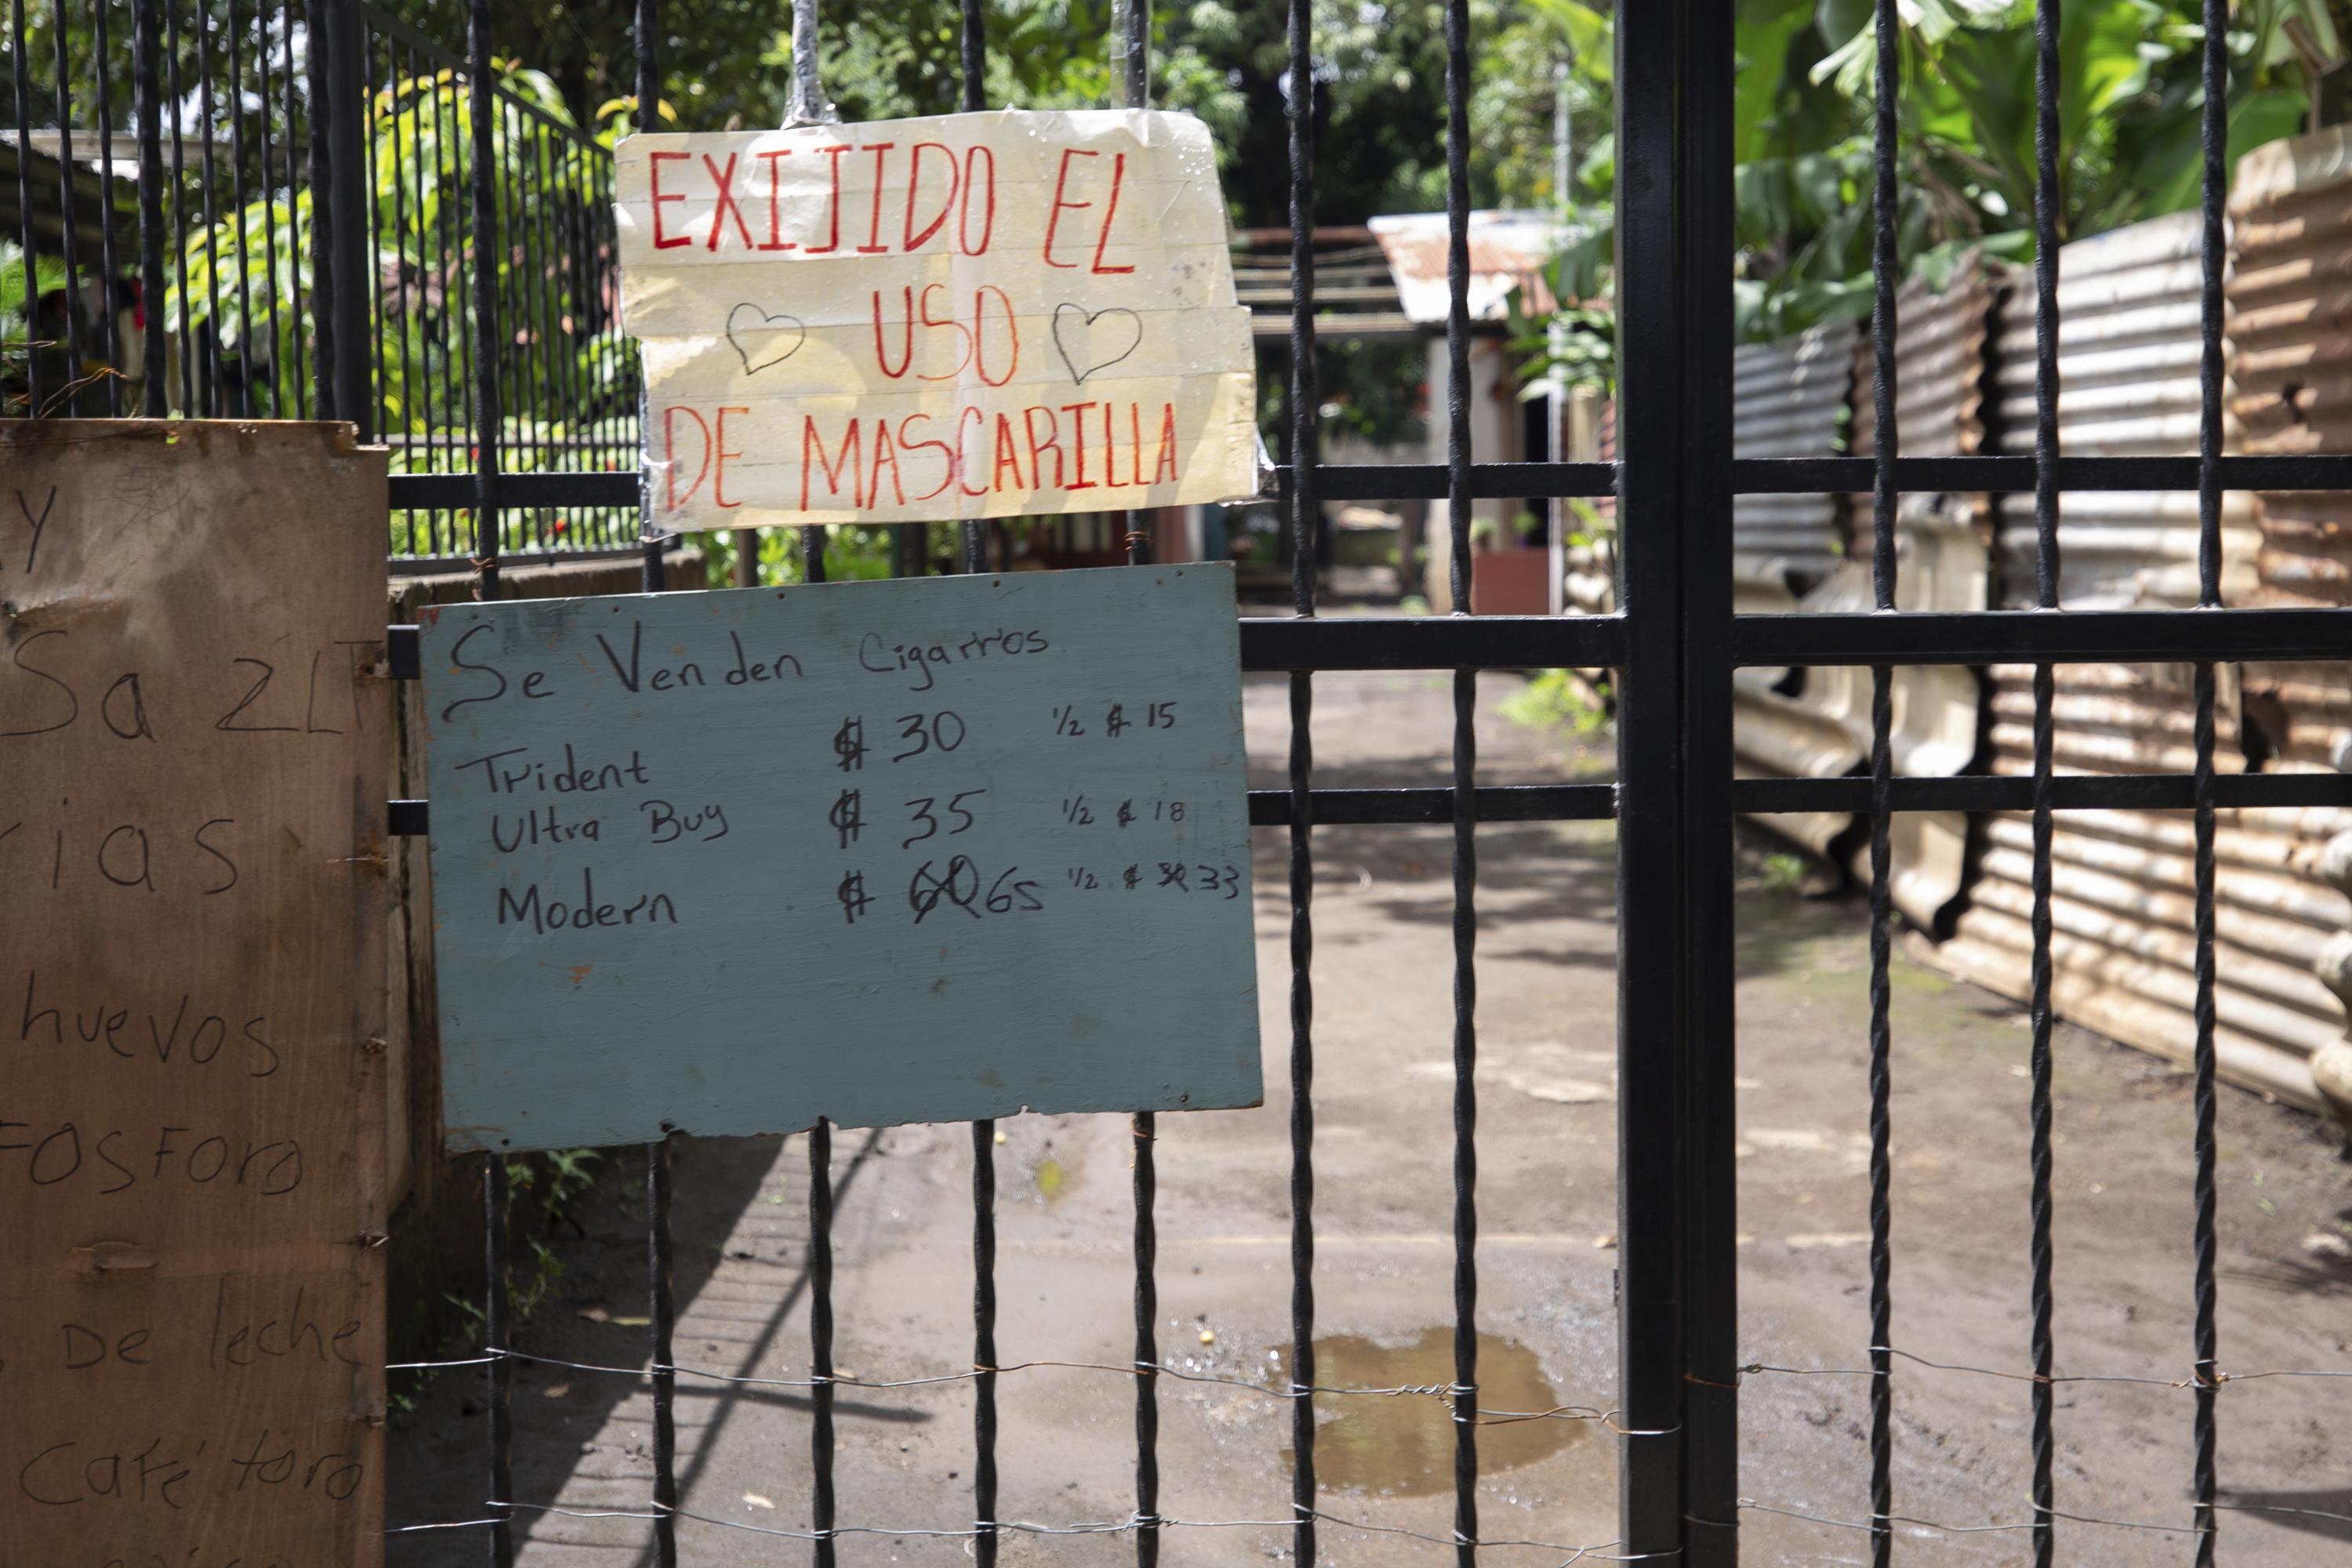 EXIJIDO EL
USO
DE MASCARILLA
Se Venden Cigarros
Trident $ 30 1/2 $ 15
Ultra Buy $ 35 1/2 $ 18
Modern $ 60 65 1/2 $ 33
Y
Sa 2LT
ias
huevos
FOSFORO
De leche
Café toro